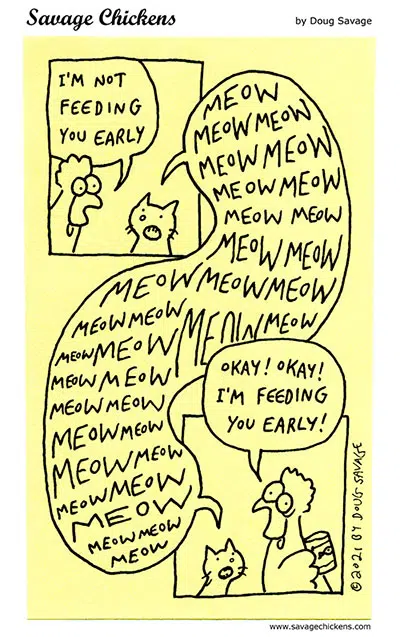 Savage Chickens
by Doug Savage
I'M NOT
FEEDING
YOU EARLY
MEOW
MEOW MEOW
MEOW MEOW
MEOW MEOW
MEOW MEOW
MEOW MEOW
MEOW MEOW MEOW
MEOW MEOW MEOW MEOW
MEOW MEOW
MEOW MEOW
MEOW MEOW
MEOW MEOW
MEOW MEOW
MEOW MEOW
MEOW
MEOW MEOW
MEOW
OKAY! OKAY!
I'M FEEDING
YOU EARLY!
© 2021 BY DOUG SAVAGE
www.savagechickens.com